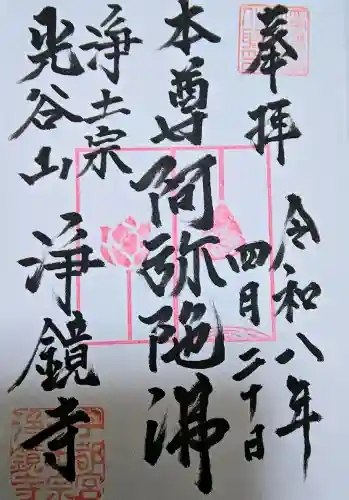 奉拝
令和八年
四月二十日
本尊阿弥陀沸
浄土宗
光谷山
浄鏡寺